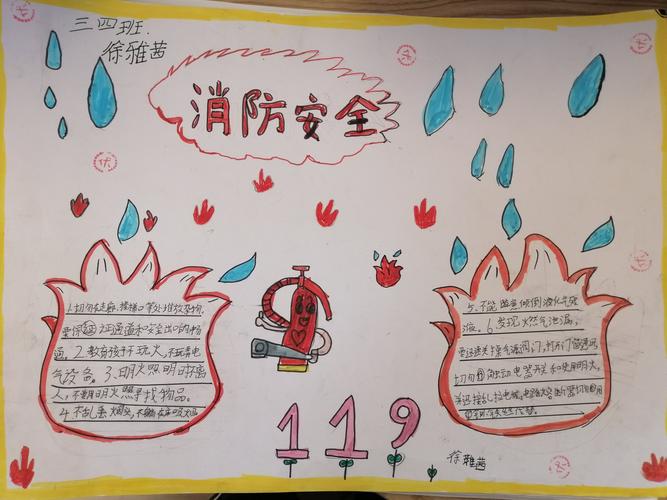 三四班
徐雅茜
消防安全
1.切勿在走廊、楼梯口等处堆放杂物,
要保证通道和安全出口的畅
通。2.教育孩子不玩火,不玩弄电
气设备。3.明火照明时不离
人,不要用明火照寻找物品。
4.不乱丢烟头,不躺在床吸烟
5.不能随意倾倒液化气残
液。6.发现燃气泄漏,
要迅速关掉气源阀门,打开门窗通风
切勿触动电器开关和使用明火,
119
徐雅茜